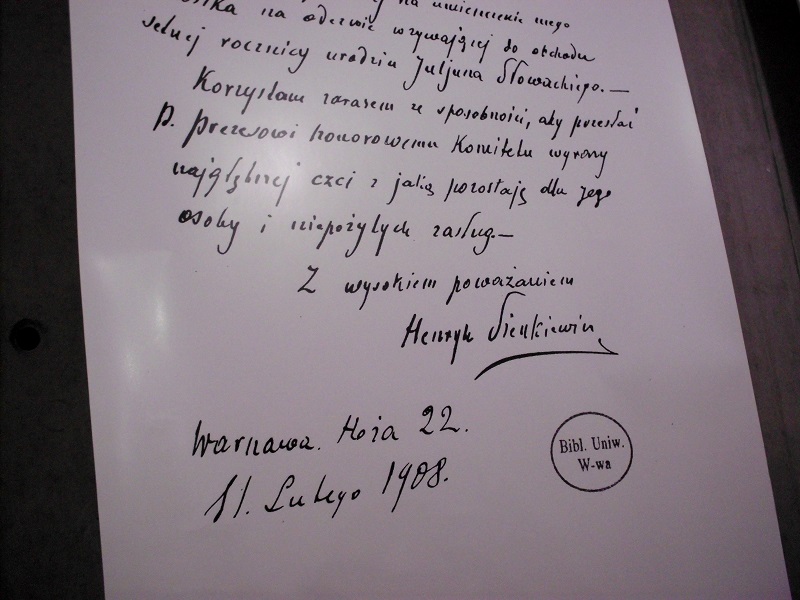 na umieszczenie mego
na odezwie wzywającej do obchodu
setnej rocznicy urodzin Juljusza Słowackiego. —
Korzystam zarazem ze sposobności, aby przesłać
P. Prezesowi honorowemu Komitetu wyrazy
najgłębszej czci z jaką pozostają dla jego
osoby i niepożytych zasług. —
Z wysokiem poważaniem
Henryk Sienkiewicz
Warszawa. Hoża 22.
11. Lutego 1908.
Bibl. Uniw.
W-wa